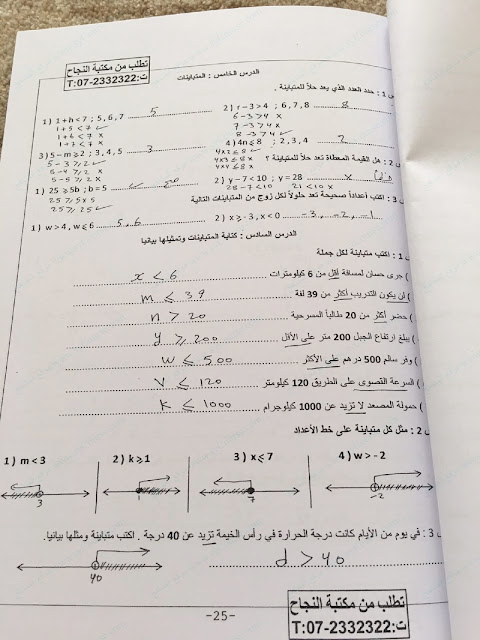 تطلب من مكتبة النجاح
ت:T:07-2332322
الدرس الخامس : المتباينات
س 1 : حدد العدد الذي يعد حلاً للمتباينة .
1) 1+h<7 ; 5,6,7 ........ 5
1+5<7 ✓
1+6<7 ×
1+7<7 ×
2) r-3>4 ; 6,7,8 ........ 8
6-3>4 ×
7-3>4 ×
8-3>4 ✓
3) 5-m≥2 ; 3,4,5 ........ 3
5-3≥2 ✓
5-4≥2 ×
5-5≥2 ×
4) 4n≤8 ; 2,3,4 ........ 2
4×2≤8 ✓
4×3≤8 ×
4×4≤8 ×
س 2 : هل القيمة المعطاة تعد حلاً للمتباينة ؟
1) 25 ≥5b ; b=5 ........ ✓
25≥5×5
25≥25 ✓
2) y-7<10 ; y=28 ........ ×
28-7<10
21<10 ×
س 3 : اكتب أعداداً صحيحة تعد حلولاً لكل زوج من المتباينات التالية
1) w>4, w≤6 ........ 5,6
2) x≥-3, x<0 ........ -3, -2, -1
الدرس السادس : كتابة المتباينات وتمثيلها بيانيا
س 1 : اكتب متباينة لكل جملة
) جرى حسان لمسافة أقل من 6 كيلومترات ........ x < 6
) لن يكون التدريب أكثر من 39 لفة ........ m ≤ 39
) حضر أكثر من 20 طالباً المسرحية ........ n > 20
) يبلغ إرتفاع الجبل 200 متر على الأقل ........ y ≥ 200
) وفر سالم 500 درهم على الأكثر ........ w ≤ 500
) السرعة القصوى على الطريق 120 كيلومتر ........ v ≤ 120
) حمولة المصعد لا تزيد عن 1000 كيلوجرام ........ k ≤ 1000
س 2 : مثل كل متباينة على خط الأعداد
1) m<3
2) k≥1
3) x≤7
4) w>-2
3
1
7
-2
س 3 : في يوم من الأيام كانت درجة الحرارة في رأس الخيمة تزيد عن 40 درجة . اكتب متباينة ومثلها بيانيا.
d > 40
40
-25-
تطلب من مكتبة النجاح
ت:T:07-2332322